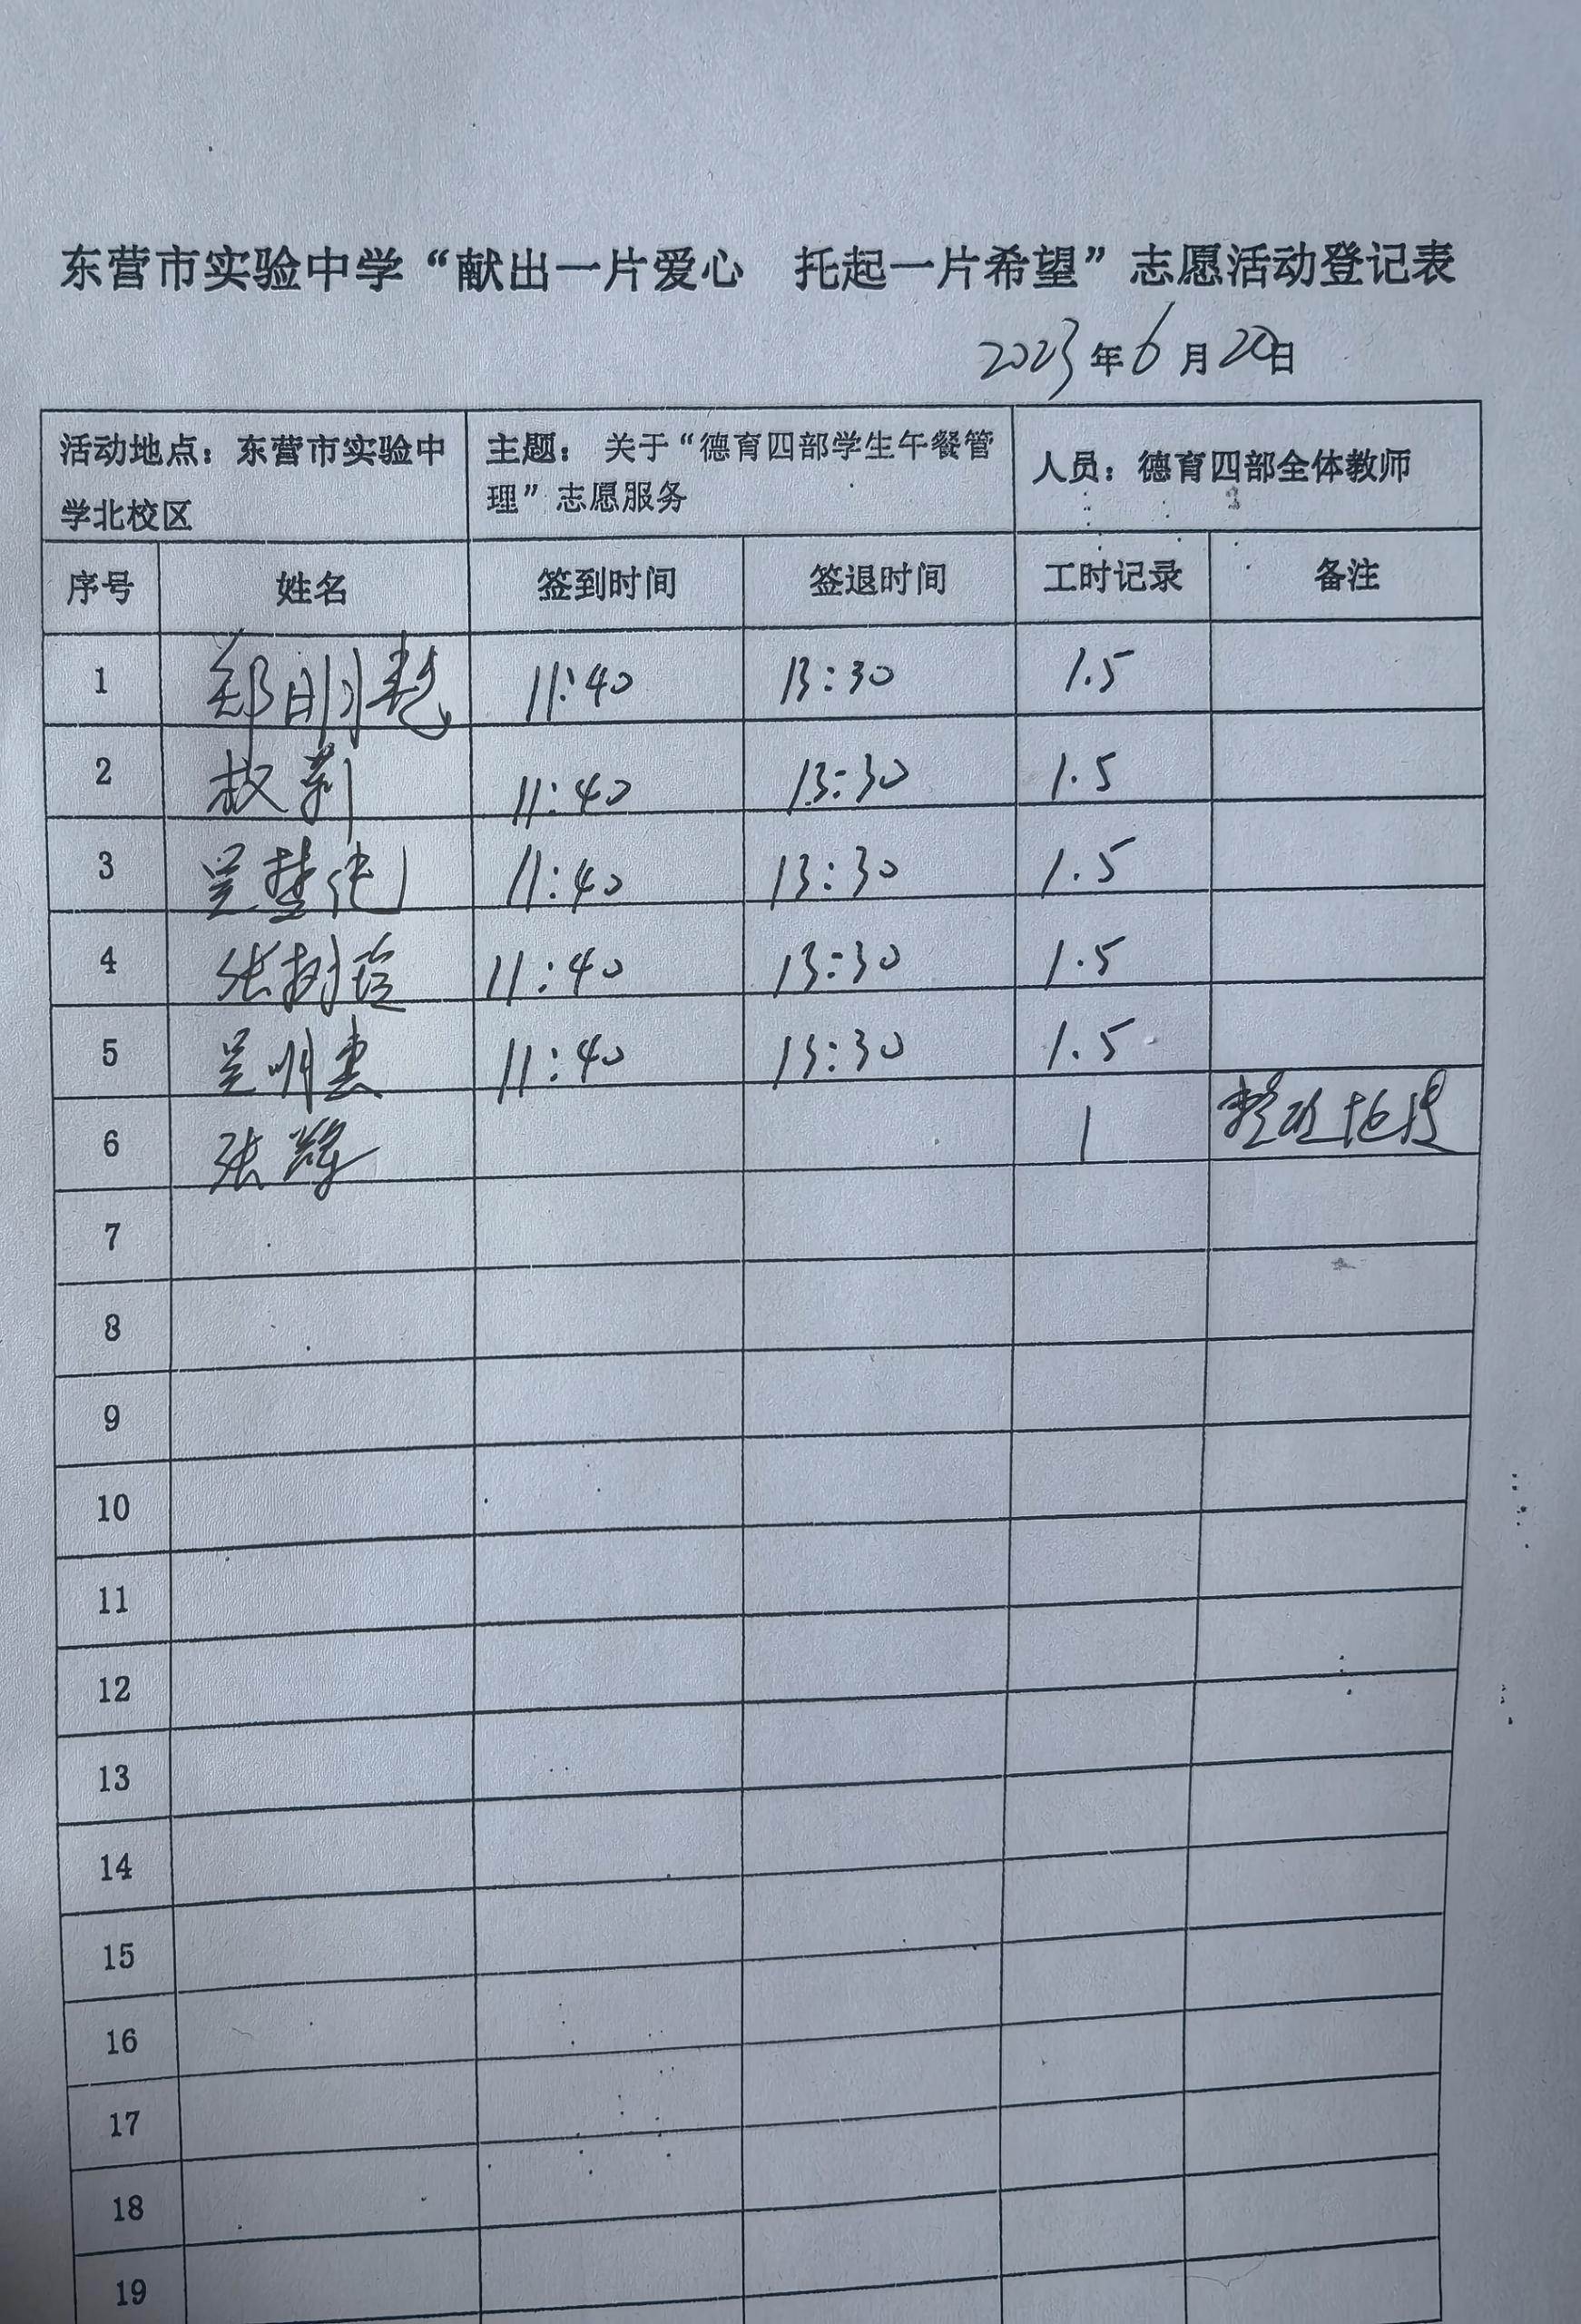 东营市实验中学“献出一片爱心 托起一片希望”志愿活动登记表
2023年6月20日
活动地点：东营市实验中
学北校区
主题： 关于“德育四部学生午餐管
理”志愿服务
人员：德育四部全体教师
序号 姓名 签到时间 签退时间 工时记录 备注
1 郑明 11:40 13:30 1.5
2 11:40 13:30 1.5
3 吴楚 11:40 13:30 1.5
4 张 11:40 13:30 1.5
5 吴明 11:40 13:30 1.5
6 张 1
7
8
9
10
11
12
13
14
15
16
17
18
19